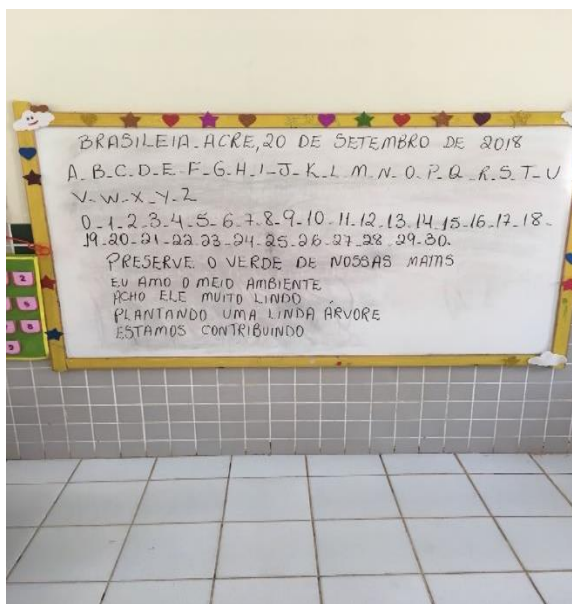 BRASILEIA-ACRE, 20 DE SETEMBRO DE 2018
A-B-C-D-E-F-G-H-I-J-K-L-M-N-O-P-Q-R-S-T-U
V-W-X-Y-Z
0-1-2-3-4-5-6-7-8-9-10-11-12-13-14-15-16-17-18-
19-20-21-22-23-24-25-26-27-28-29-30-
PRESERVE O VERDE DE NOSSAS MATAS
EU AMO O MEIO AMBIENTE
ACHO ELE MUITO LINDO
PLANTANDO UMA LINDA ÁRVORE
ESTAMOS CONTRIBUINDO